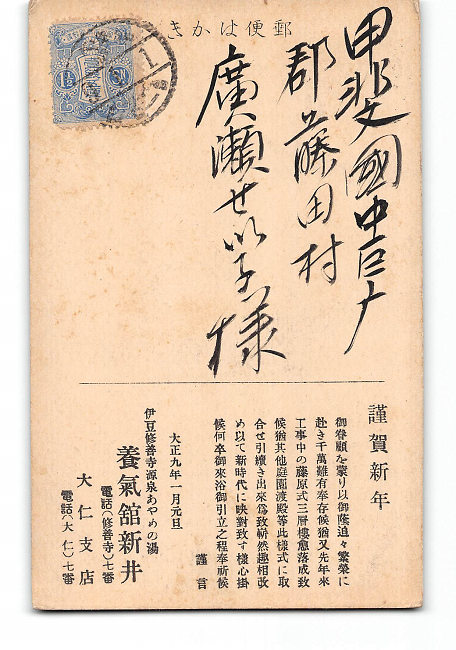 郵便はかき
甲斐國中巨广
郡藤田村
廣瀬せい子様
謹賀新年
御眷顧を蒙り以御蔭追々繁榮に
赴き千萬難有奉存候猶又先年來
工事中の藤原式三層樓愈落成致
候猶其他庭園渡殿等此樣式に取
合せ引續き出來爲致斬然趣相改
め以て新時代に映對致す樣心掛
候何卒御來浴御引立之程奉祈候
謹言
大正九年一月元旦
伊豆修善寺源泉あやめの湯
養氣舘新井
電話(修善寺)七番
大仁支店
電話(大仁)七番